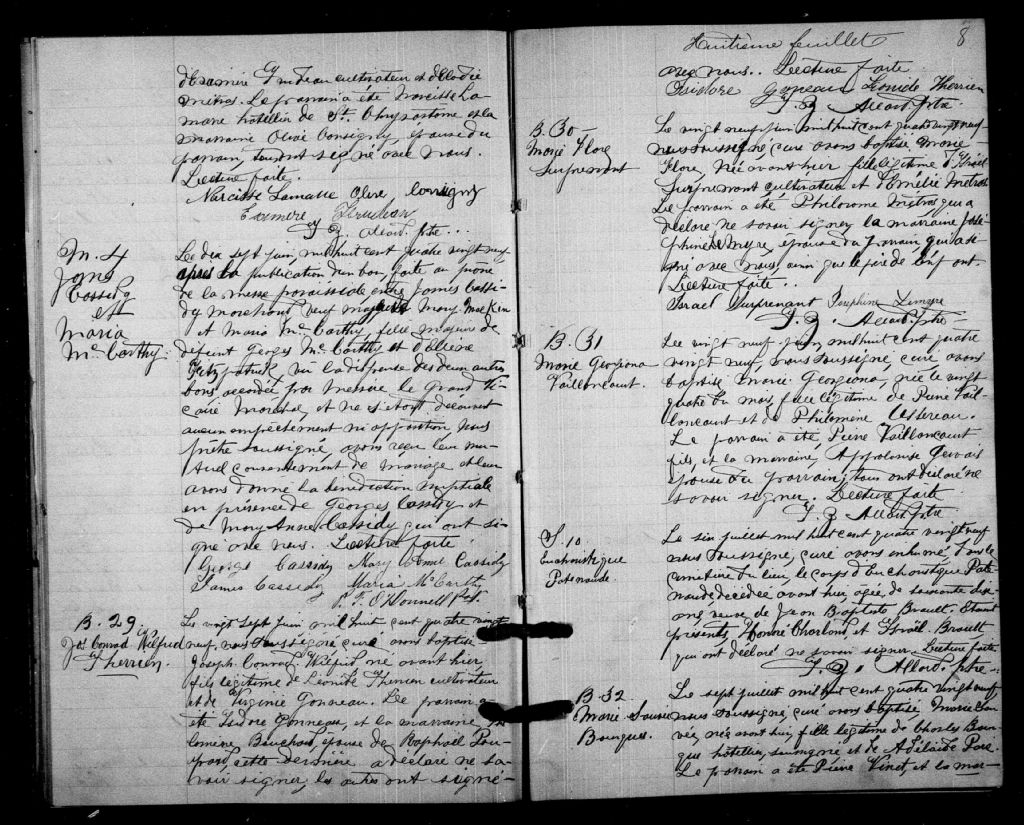 d'Examère Trudeau cultivateur et d'Elodie
Métras. Le parrain a été Narcisse La-
marre hôtellier de St. Chrysostome et la
marraine Olive Consigny, épouse du
parrain, tous ont signé avec nous.
Lecture faite.
Narcisse Lamarre Olive Consigny
Examere Trudeau
F. Z. Allard ptre...
M. 4
James
Cassidy
et
Maria
McCarthy.
Le dix sept juin, mil huit cent quatre vingt neuf
après la publication d'un ban, faite au prône
de la messe paroissiale entre James Cassi-
dy marchand, veuf majeur de Mary
et Maria McCarthy, fille majeure de
défunt Georges McCarthy et d'
Fitzpatrick, vu la dispense des deux autres
bans accordée par Messire le Grand Vi-
caire Maréchal, et ne s'étant découvert
aucun empêchement ni opposition, nous
prêtre soussigné, avons reçu leur mu-
tuel consentement de mariage et leur
avons donné la bénédiction nuptiale
en présence de Georges Cassidy et
de Mary Anne Cassidy qui ont si-
gné avec nous. Lecture faite.
George Cassidy Mary Annie Cassidy
James Cassidy Maria McCarthy
P. F. O'Donnell Pst.
B. 29.
Jos. Conrad Wilfrid
Therrien.
Le vingt sept juin mil huit cent quatre vingt
neuf, nous soussigné curé avons baptisé
Joseph Conrad Wilfrid né avant hier,
fils légitime de Léonide Therrien cultivateur
et de Virginie Gonneau. Le parrain a
été Isidore Gonneau, et la marraine, Phi-
lomène Bouchard, épouse de Raphaël Pou-
pard, cette dernière a déclaré ne sa-
voir signer, les autres ont signé-
Huitième feuillet
8
avec nous.. Lecture faite.
Isidore Goneau Léonide Therrien
F. Z. Allard Ptre.
B. 30-
Marie Flore
Surprenant
Le vingt neuf juin mil huit cent quatre vingt neuf-
nous soussigné, curé avons baptisé Marie
Flore, née avant hier fille légitime d'Israël
Surprenant cultivateur et d'Amélie Métras
Le parrain a été Philorome Métras qui a
déclaré ne savoir signer, la marraine José-
phine Lemyre, épouse du parrain qui a si-
gné avec nous, ainsi que le père de l'enfant.
Lecture faite..
Israel Surprenant Josephine Limyre
F. Z. Allard Ptre
B. 31
Marie Georgiana
Vaillancourt.
Le vingt neuf juin mil huit cent quatre
vingt neuf, nous soussigné, curé avons
baptisé Marie Georgiana, née le vingt
quatre du mois, fille légitime de Pierre Vail-
lancourt et de Philomène Cesereau.
Le parrain a été, Pierre Vaillancourt
fils, et la marraine, Appolonise Gervais
épouse du parrain, tous ont déclaré ne
savoir signer. Lecture faite
F. Z Allard Ptre
S. 10
Eucharistique
Patenaude.
Le six juillet mil huit cent quatre vingt neuf
nous soussigné, curé avons inhumé dans le
cimetière du lieu, le corps d'Eucharistique Pate
naude décédée avant hier, agée, de soixante dix
ans, veuve de Jean Baptiste Brault. Etaient
présents, Honoré Charland, et Israël Brault
qui ont déclaré ne savoir signer. Lecture faite
F. Z. Allard, ptre-
B. 32
Marie Louise
Bourgue.
Le sept juillet mil huit cent quatre vingt neuf
nous soussigné, curé avons baptisé Marie Lou
ise, née avant hier, fille légitime de Charles Bour-
gue hôtellier, soussigné et de Adélaide Paré.
Le parrain a été Pierre Vinet, et la mar-